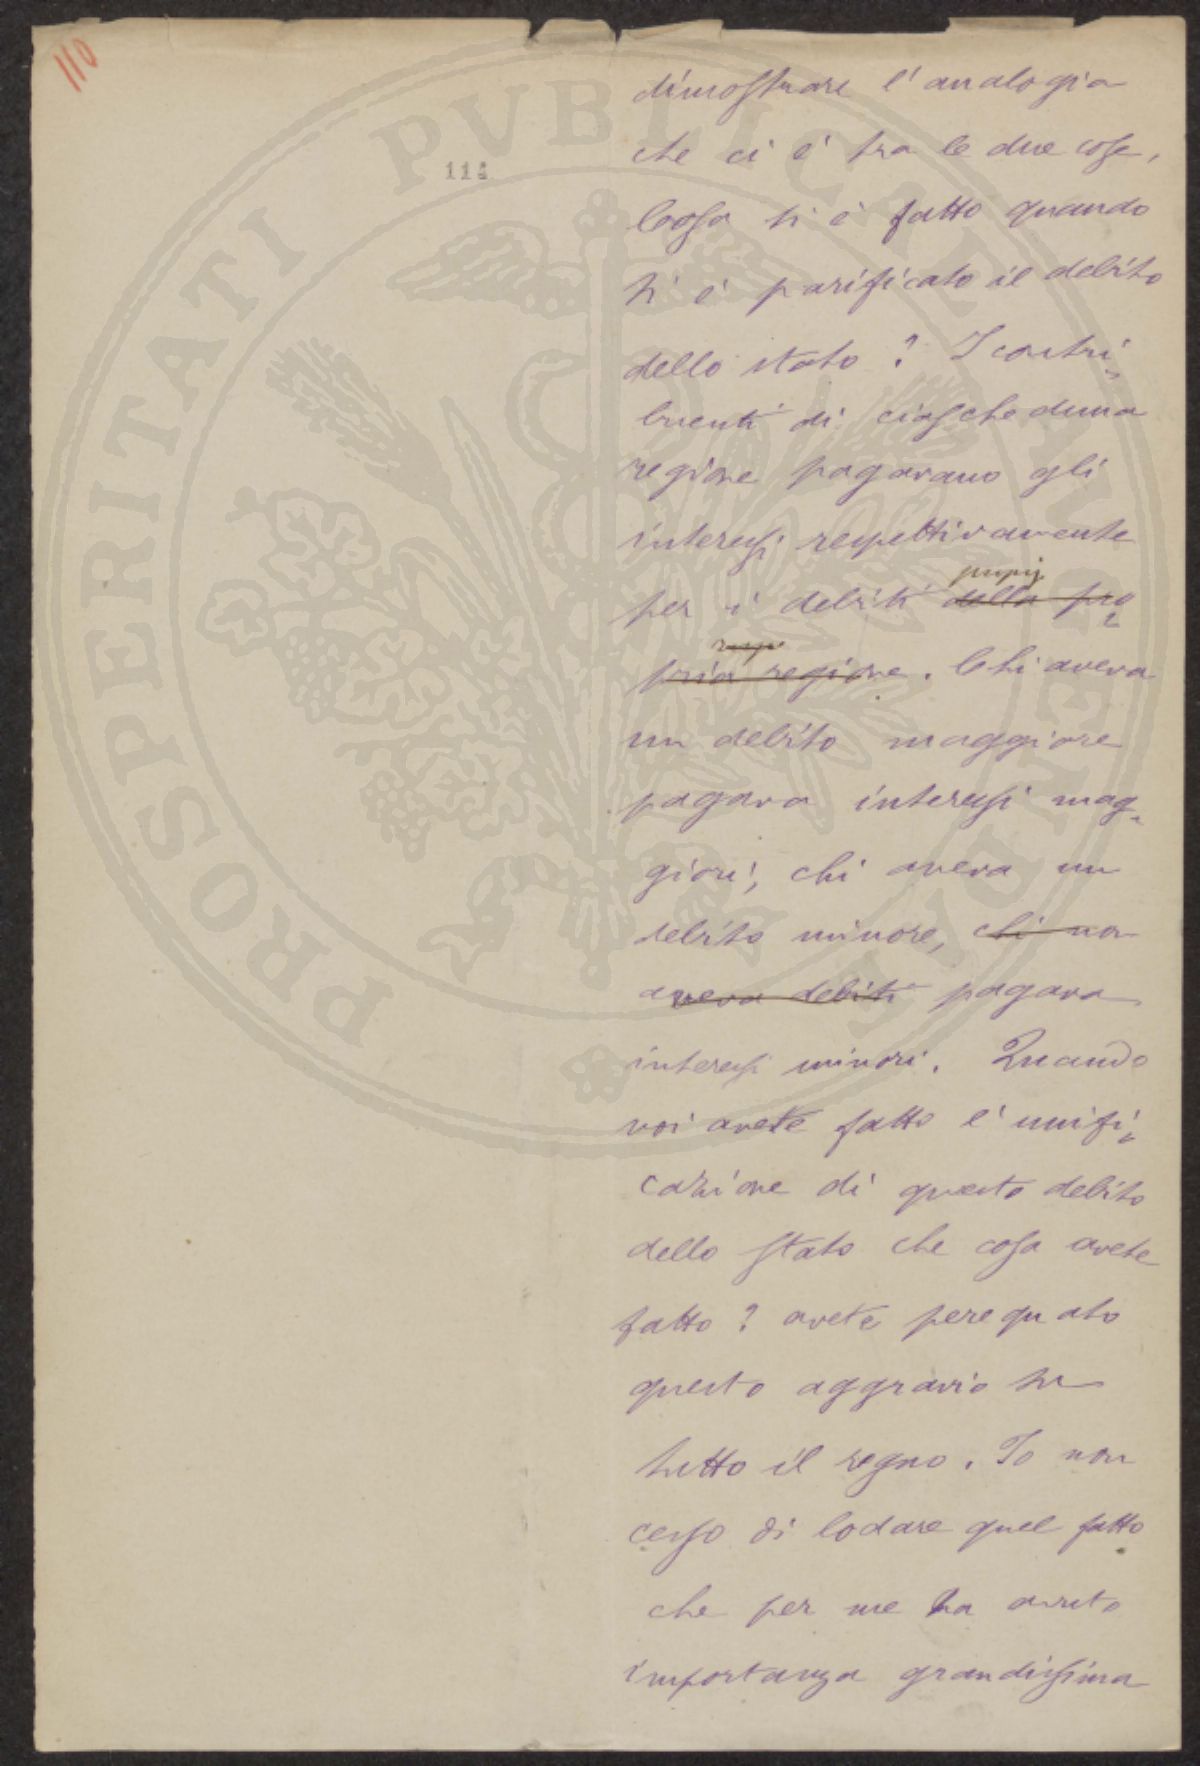 110
114
PROSPERITATI PVBLICAE AVGENDAE
dimostrare l'analogia
che ci è tra le due cose,
Cosa si è fatto quando
si è parificato il debito
dello stato? I contri-
buenti di ciascheduna
regione pagavano gli
interessi respettivamente
proprj
per i debiti della pro-
pria regione. Chi aveva
un debito maggiore
pagava interessi mag-
giori, chi aveva un
debito minore, chi non
aveva debiti pagava
interessi minori. Quando
voi avete fatto l'unifi-
cazione di questo debito
dello Stato che cosa avete
fatto? avete perequato
questo aggravio su
tutto il regno. Io non
cesso di lodare quel fatto
che per me ha avuto
importanza grandissima